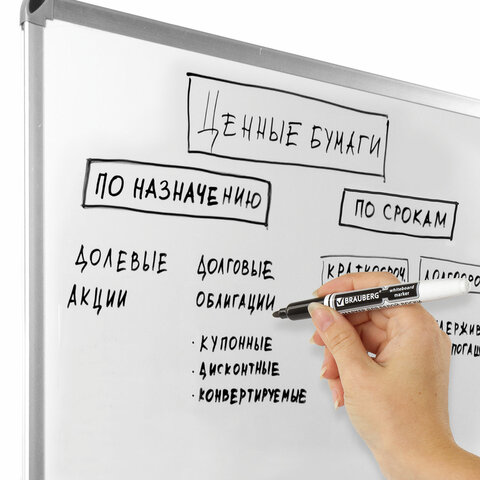 ЦЕННЫЕ БУМАГИ
ПО НАЗНАЧЕНИЮ
ПО СРОКАМ
ДОЛЕВЫЕ
АКЦИИ
ДОЛГОВЫЕ
ОБЛИГАЦИИ
· КУПОННЫЕ
· ДИСКОНТНЫЕ
· КОНВЕРТИРУЕМЫЕ
КРАТКОСРОЧ
ДОЛГОСРО
BRAUBERG whiteboard
marker